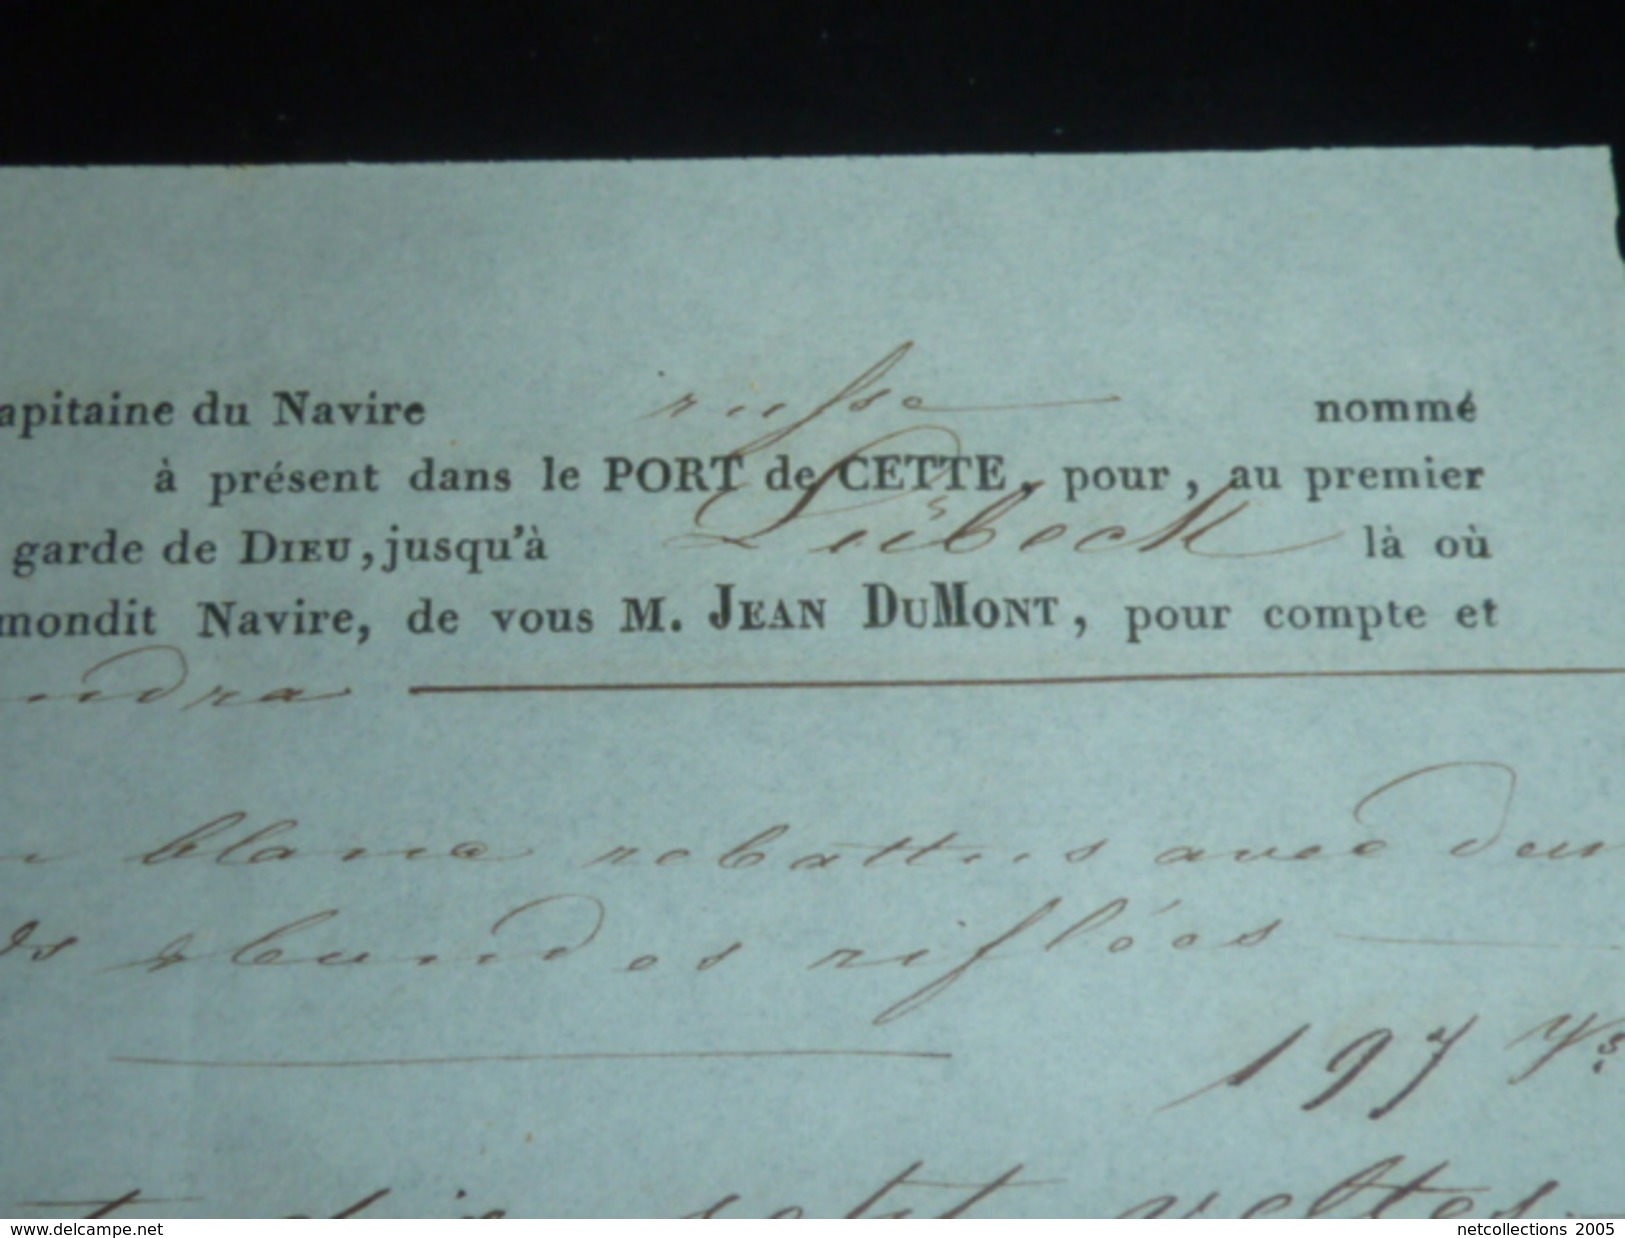 apitaine du Navire russe nommé
à présent dans le PORT de CETTE, pour, au premier
garde de DIEU, jusqu'à Lübeck là où
mondit Navire, de vous M. JEAN DUMONT, pour compte et
ndra
blanc rebattus avec
bandes riflées
197 Vs
dix sept veltes
delcampe.net
netcollections 2005